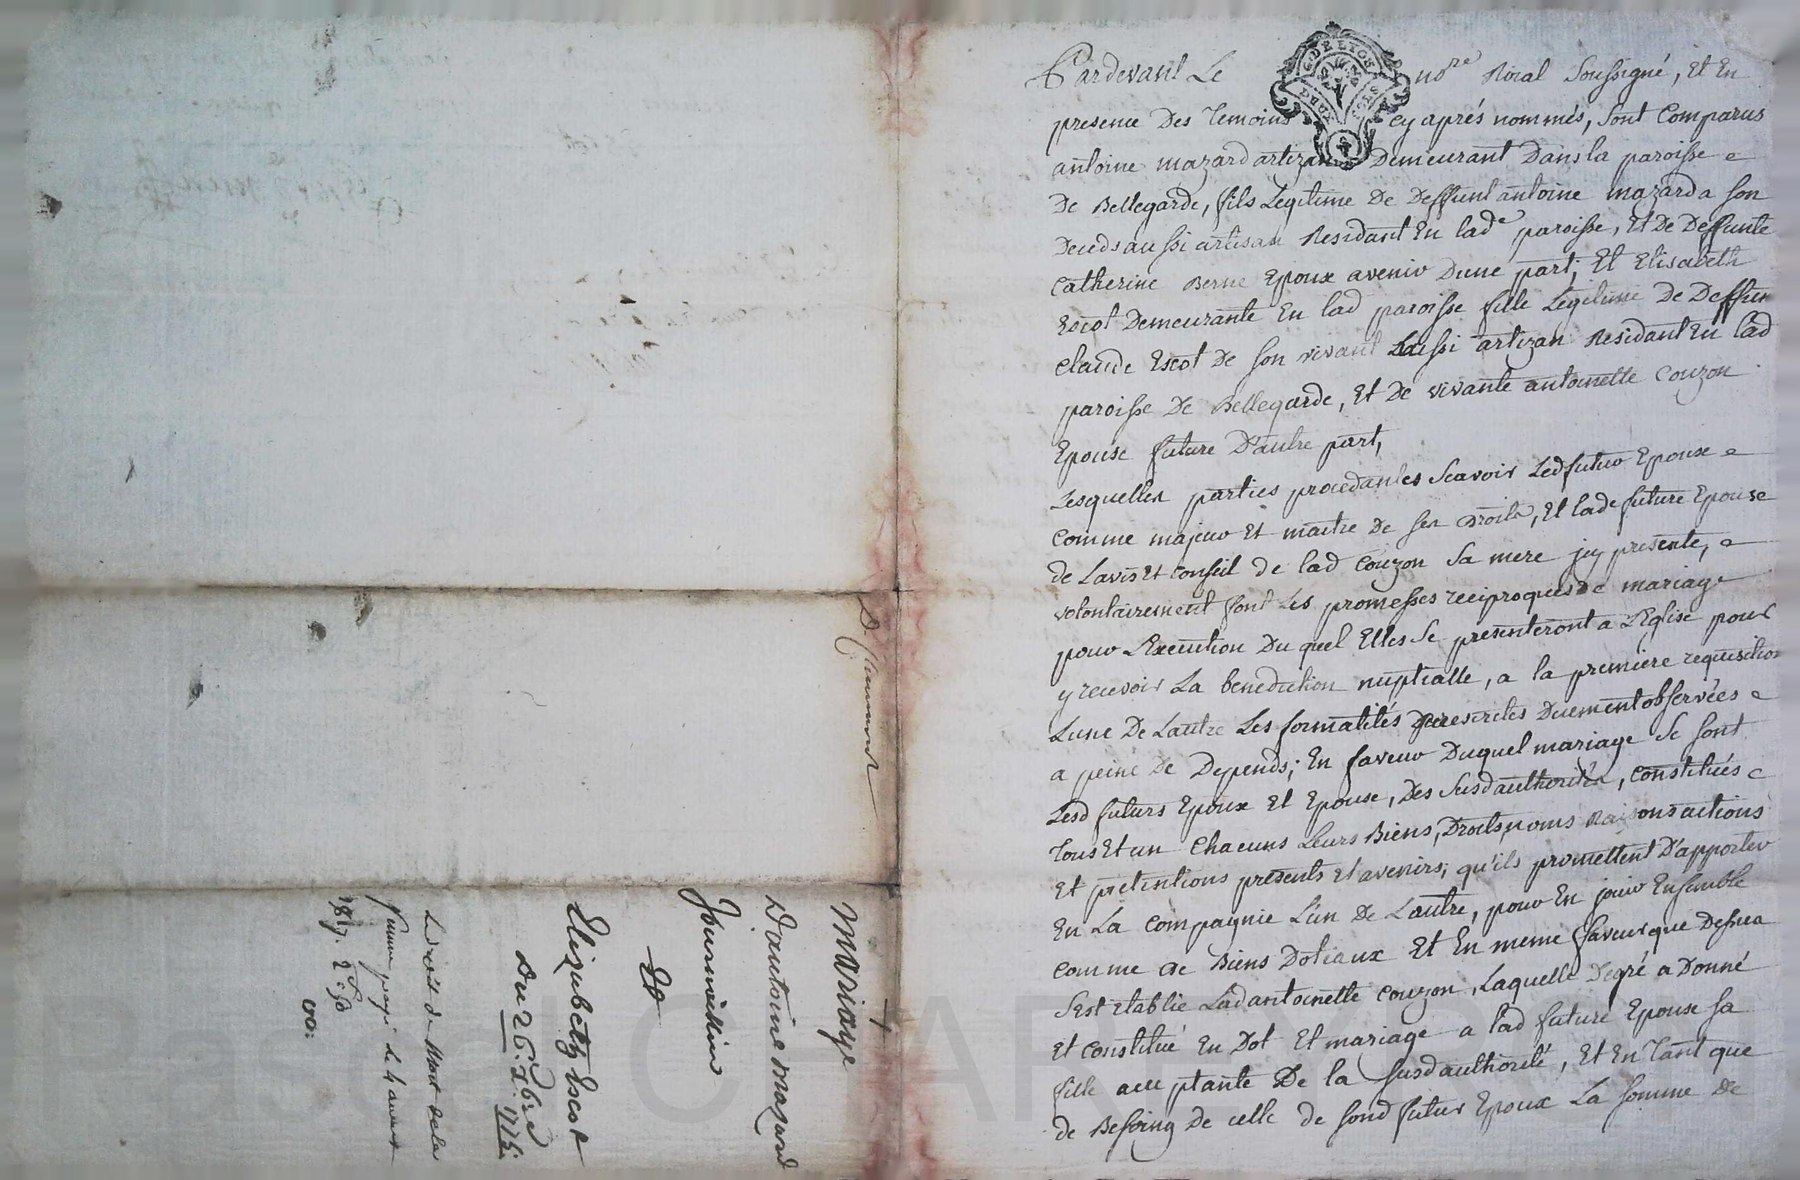 Pardevant Le no.re Roial Soussigné, Et En
presence Des Temoins cy aprés nommés, sont Comparus
antoine mazard artizan Demeurant Dans la paroisse
De Bellegarde, fils Legitime De Deffunt antoine mazard a son
Deceds aussi artisan Residant En lad.e paroisse, Et De Deffunte
Catherine Berne Epoux avenir Dune part, Et Elisabeth
Escot Demeurante En lad paroisse fille Legitime De Deffun
Claude Escot De son vivant aussi artizan Residant En lad
paroisse De Bellegarde, Et De vivante antoinette Couzon
Epouse future D'autre part,
Lesquelles parties procedantes Scavoir Led futur Epoux
Comme majeur Et maitre De ses Droits, Et lade future Epouse
de Lavis Et Conseil de lad Couzon Sa mere jcy presente,
volontairement font Les promesses reciproques de mariage
pour L'Execution Du quel Elles Se presenteront a L'Eglise pour
y recevoir La benediction nuptialle, a la premiere requisition
Lune De Lautre Les formalités prescrites Duement observées
a peine De Depends; En faveur Duquel mariage Se sont
Lesd futurs Epoux Et Epouse, Des Susd authorités, Constitués
Tous Et un Chacuns Leurs Biens, Droits, noms Raisons actions
Et pretentions presents Et avenirs, qu'ils promettent D'apporter
En La Compagnie L'un De Lautre, pour En jouir Ensemble
Comme De Biens Dotaux Et En meme faveur que Dessus
S'est Etablie Lad antoinette Couzon, Laquelle De gré a Donné
Et Constitué En Dot Et mariage a lad future Epouse Sa
fille acceptante De la susd authorité, Et En Tant que
de Besoing De celle de sond futur Epoux La Somme De
G. DE LYON
DEUX SOLS
+
Mariage
D'antoine mazard
Et
Elizabeth Escot
Du 26. 7bre 1775.
Ledroit de